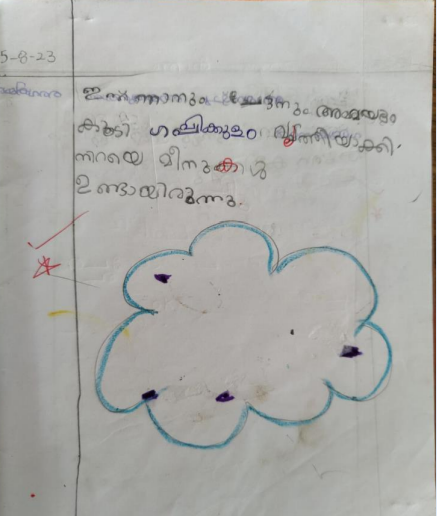 5-8-23
ഇന്ന് ഞാനും ചേട്ടനും അമ്മയും
കൂടി ഗപ്പിക്കുളം വൃത്തിയാക്കി.
നിറയെ മീനുകൾ
ഉണ്ടായിരുന്നു.